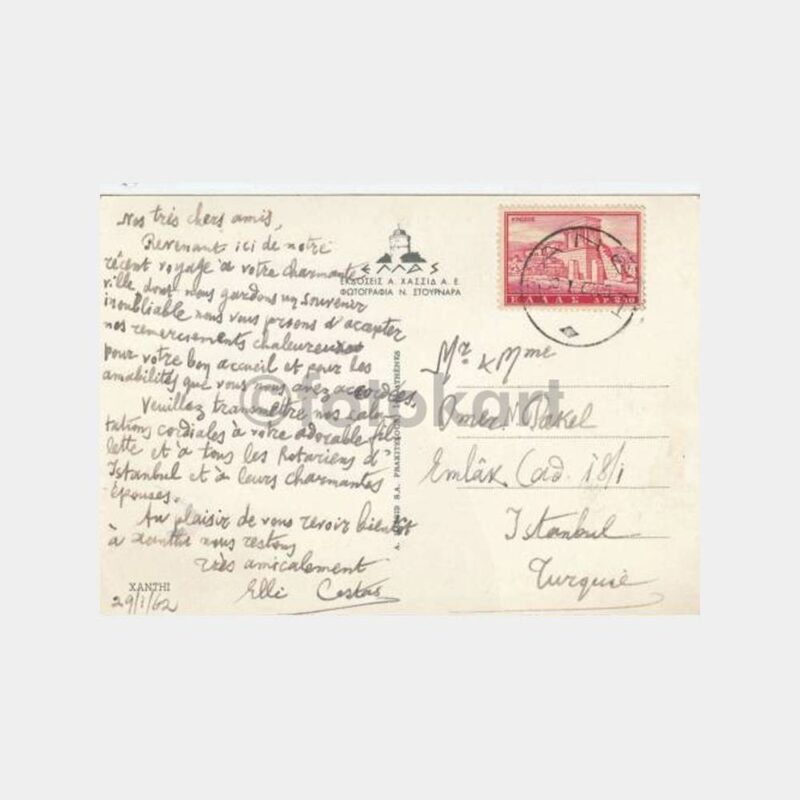 Nos très chers amis,
Revenant ici de notre
récent voyage à votre charmante
ville dont nous gardons un souvenir
inoubliable nous vous prions d'accepter
nos remerciements chaleureux
pour votre bon accueil et pour les
amabilités que vous nous avez accordées.
Veuillez transmettre nos salu-
tations cordiales à votre adorable fil-
lette et à tous les Rotariens d'
Istanbul et à leurs charmantes
épouses.
Au plaisir de vous revoir bientôt
à Xanthi nous restons
très amicalement
Elli Costas
XANTHI
29/1/62
ΕΛΛΑΣ
ΕΚΔΟΣΕΙΣ Α. ΧΑΣΣΙΔ Α.Ε.
ΦΩΤΟΓΡΑΦΙΑ Ν. ΣΤΟΥΡΝΑΡΑ
S.A. ATHÈNES
ΕΛΛΑΣ ΔΡ.
Mr & Mme
Omer
Emlâk Cad. 18/1
Istanbul
Turquie
©fotokart